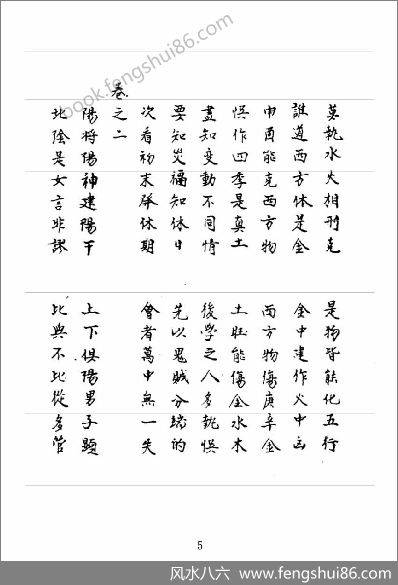 book.fengshui86.com
莫執水火相刑克 是物皆能化五行
誰道西方休是金 金中建作火中凶
申酉能克西方物 西方物傷庚辛金
悮作四季是真土 土旺能傷金水木
盡知變動不同情 後學之人多執悮
要知災福知休日 先以鬼賊分端的
次看初末解休期 會者萬中無一失
卷之二
陽將陽神建陽干 上下俱陽男子題
北陰是女言非謬 比與不比從多管
5
风水八六 www.fengshui86.com